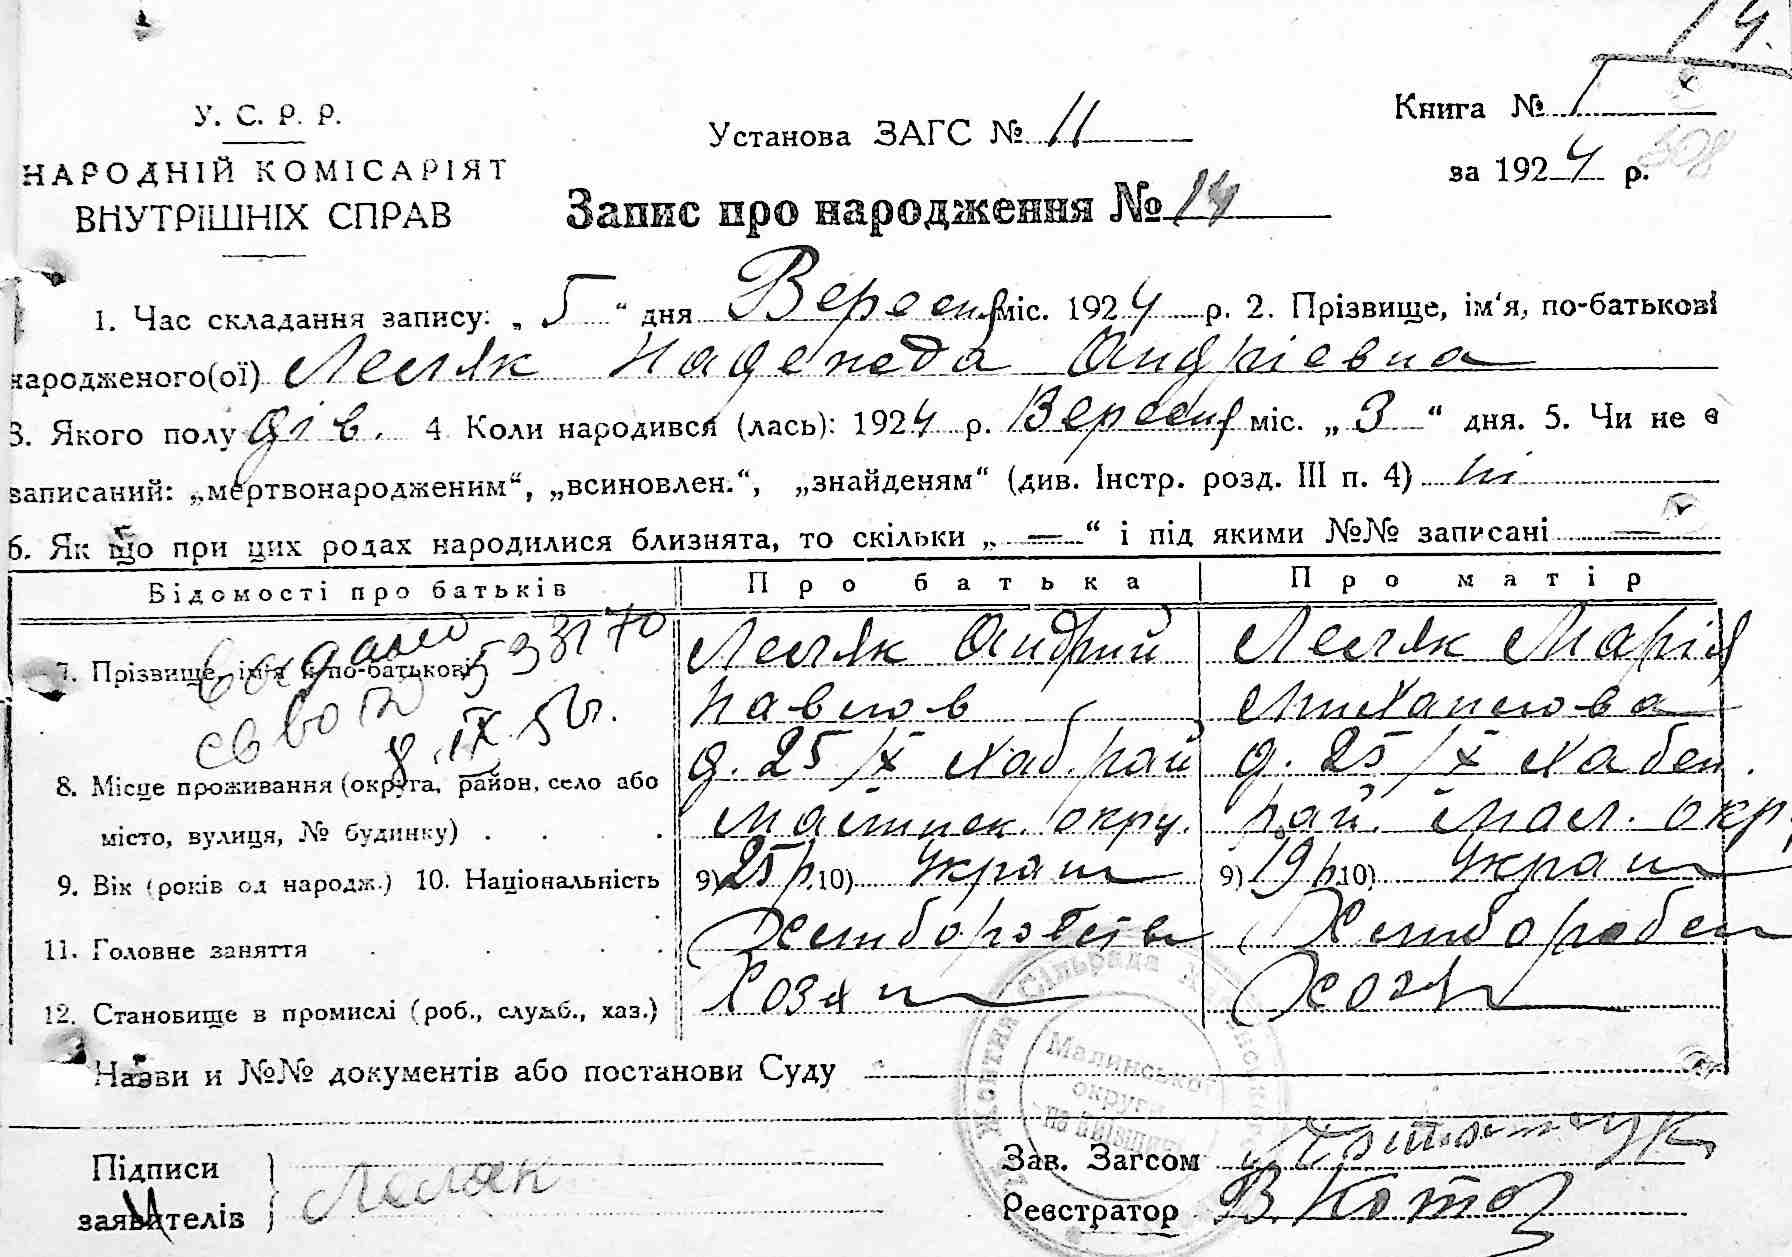 14.
У. С. Р. Р.
НАРОДНІЙ КОМІСАРІЯТ
ВНУТРІШНІХ СПРАВ
Установа ЗАГС № 11
Книга № 1
за 1924 р. 308
Запис про народження № 14
1. Час складання запису: „ 5 “ дня Вересня міс. 1924 р. 2. Прізвище, ім'я, по-батькові
народженого(ої) Леляк Надежда Андрієвна
3. Якого полу дів. 4 Коли народився (лась): 1924 р. Вересня міс. „ 3 “ дня. 5. Чи не є
записаний: „мертвонародженим“, „всиновлен.“, „знайденям“ (див. Інстр. розд. III п. 4) ні
6. Як що при цих родах народилися близнята, то скільки „ — “ і під якими №№ записані —
Бідомості про батьків Про батька Про матір
7. Прізвище, ім'я й по-батькові Леляк Андрий Леляк Марія
Павлов Михайлова
8. Місце проживання (округа, район, село або д. 25/X Хаб. рай д. 25/X Хабен.
місто, вулиця, № будинку) . . . Малинск. окру. рай. Мал. окр.
9. Вік (років од народж.) 10. Національність 9) 25 р. 10) Украин 9) 19 р. 10) Украин
11. Головне заняття . . . Хлиборобств Хлиборобст
12. Становище в промислі (роб., служб., хаз.) Хозяин Хозя
видано
8.IX.56г.
Назви и №№ документів або постанови Суду —
Сільрада
Малинської
округи
на Київщині
Підписи
заявителів } Леляк
Зав. Загсом
Реєстратор В. Котов